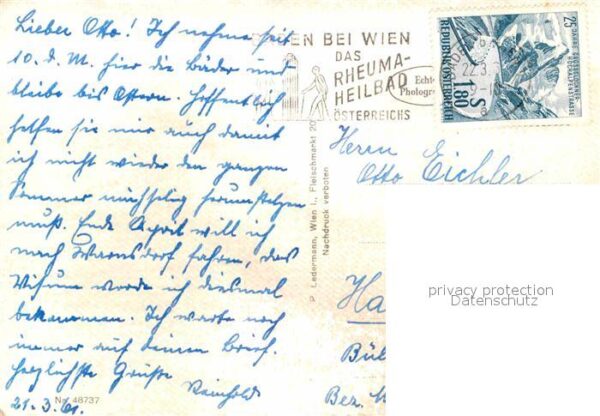 Lieber Otto! Ich nehme seit
10. d. M. hier die Bäder und
bleibe bis Ostern. Hoffentlich
helfen sie mir auch damit
ich nicht wieder den ganzen
Sommer mühselig herumstelzen
muß. Ende April will ich
nach Warnsdorf fahren, das
Visum werde ich diesmal
bekommen. Ich warte noch
immer auf Deinen Brief.
Herzlichste Grüße
Reinhold
21.3.61.
No. 48737
P. Ledermann, Wien I., Fleischmarkt 20
Nachdruck verboten
EN BEI WIEN
DAS
RHEUMA-
HEILBAD
ÖSTERREICHS
Echt-
Photogr
25
JAHRE GROSSGLOCKNER-
HOCHALPENSTRASSE
REPUBLIK ÖSTERREICH
S 1.80
Herrn
Otto Eichler
Ha
Bül
Bez. 
privacy protection
Datenschutz